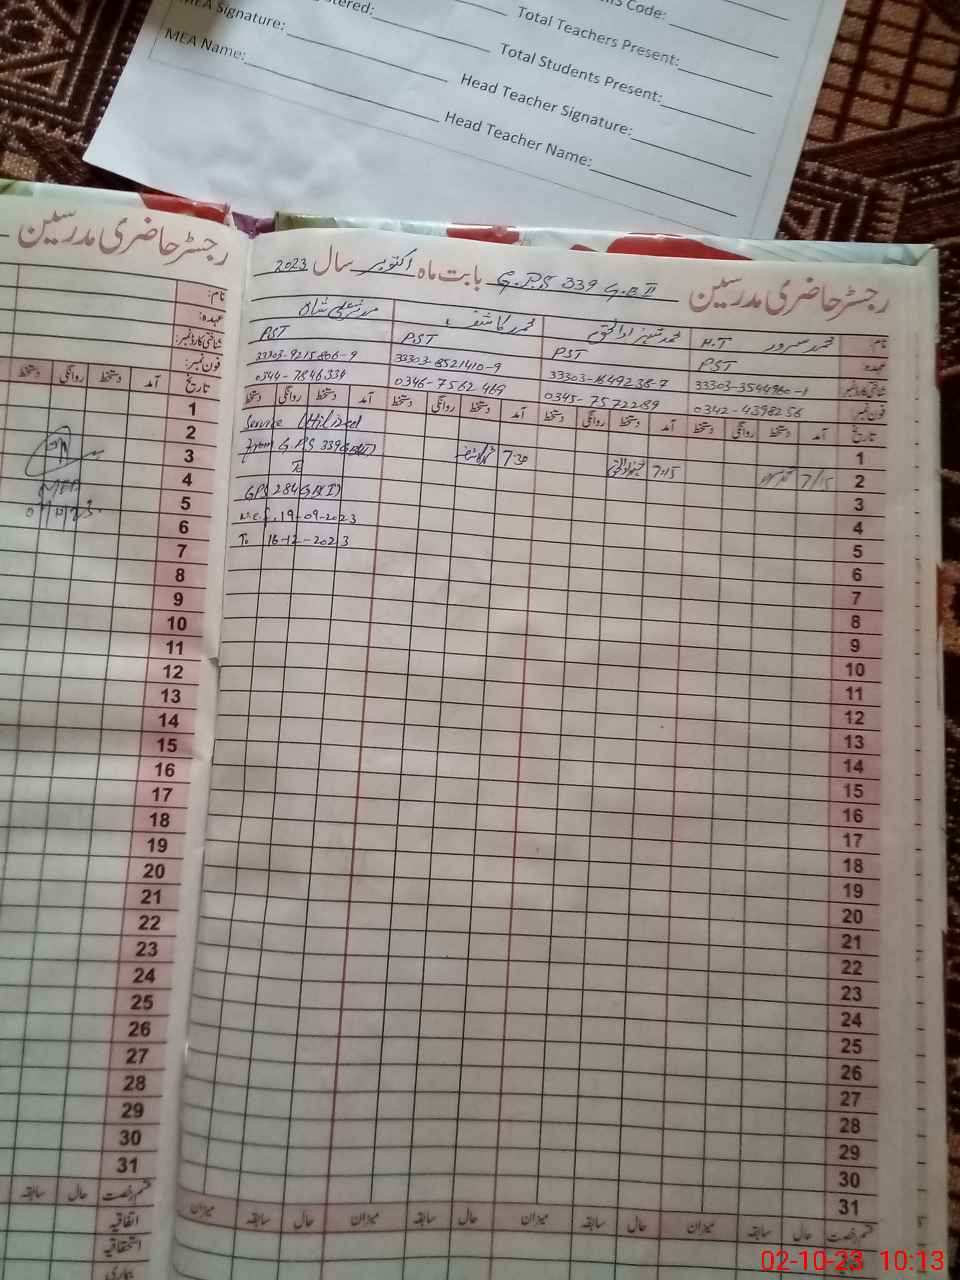 MS Code:
Total Teachers Present:
Total Students Present:
MEA Signature:
Head Teacher Signature:
MEA Name:
Head Teacher Name:
رجسٹر حاضری مدرسین
نام:
عہدہ:
شناختی کارڈ نمبر:
فون نمبر:
تاریخ آمد دستخط روانگی دستخط
1
2
3
4
5
6
7
8
9
10
11
12
13
14
15
16
17
18
19
20
21
22
23
24
25
26
27
28
29
30
31
MEA
قسم رخصت حال سابقہ
اتفاقیہ
استحقاقیہ
بیماری
رجسٹر حاضری مدرسین G.P.S 339 G.B II بابت ماہ اکتوبر سال 2023
نام: محمد سرور H.T
محمد کاشف
عہدہ: PST PST PST PST
شناختی کارڈ نمبر: 33303-3544960-1 33303-1849238-7 33303-8521410-9 33303-9215806-9
فون نمبر: 0342-4398256 0345-7572289 0346-7562469 0344-7846334
تاریخ آمد دستخط روانگی دستخط آمد دستخط روانگی دستخط آمد دستخط روانگی دستخط آمد دستخط روانگی دستخط
Service Utilized
1
from G.P.S 339 GB(II)
2 7/15 7:15 7:30
To
3
GPS 284 GB(I)
4
w.e.f. 19-09-2023
5
To 16-12-2023
6
7
8
9
10
11
12
13
14
15
16
17
18
19
20
21
22
23
24
25
26
27
28
29
30
31
قسم رخصت حال سابقہ میزان حال سابقہ میزان حال سابقہ میزان حال سابقہ میزان
02-10-23 10:13